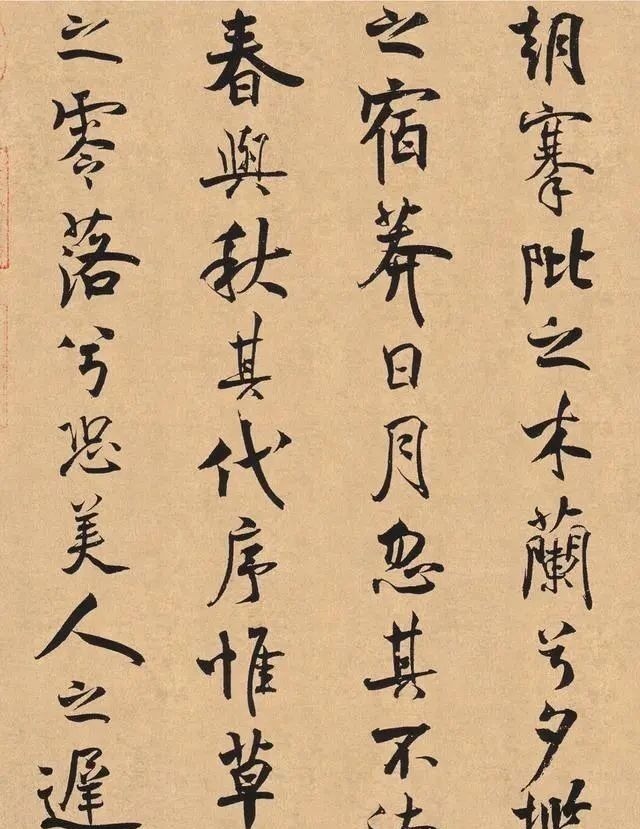 朝搴阰之木蘭兮夕
之宿莽日月忽其不
春與秋其代序惟草
之零落兮恐美人之遲